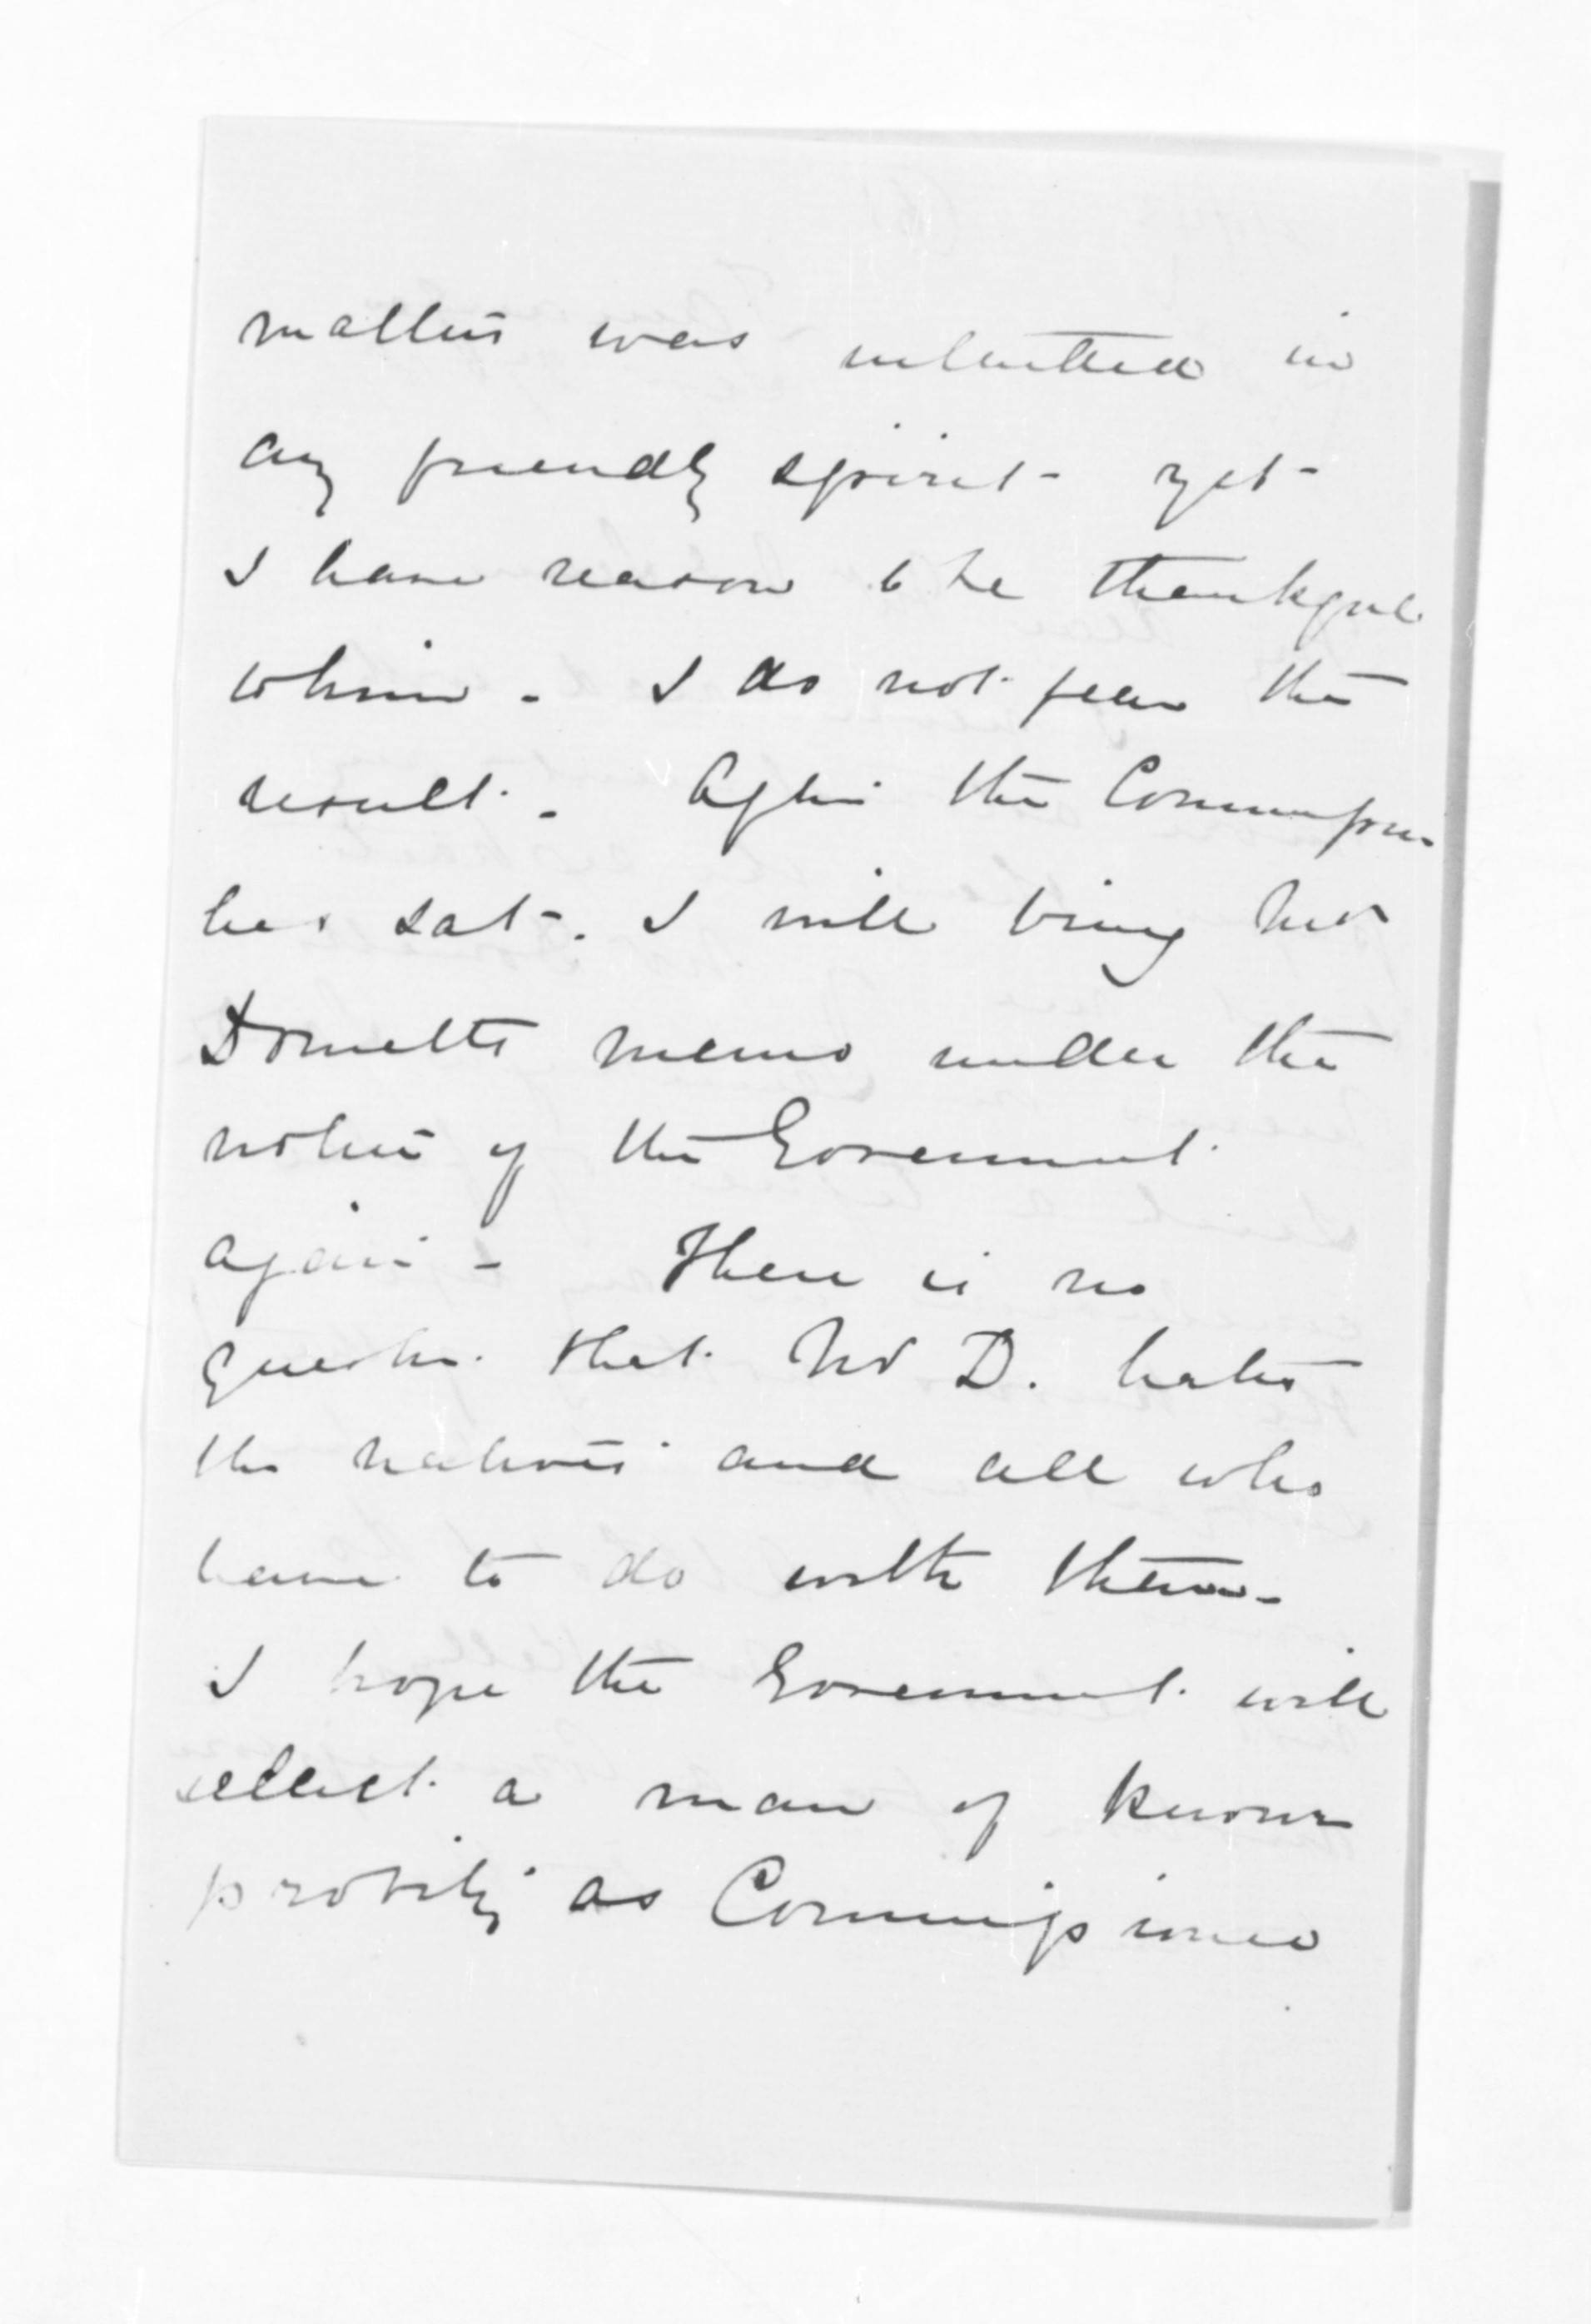 matters was instituted in
any friendly spirit - yet -
I have reason to be thankful
to him - I do not fear the
result. - After the Commission
has sat - I will bring Mr
Domett's memo under the
notice of the Government
again - There is no
question that Mr D. hates
the natives and all who
have to do with them -
I hope the Government will
select a man of known
probity as Commissioner